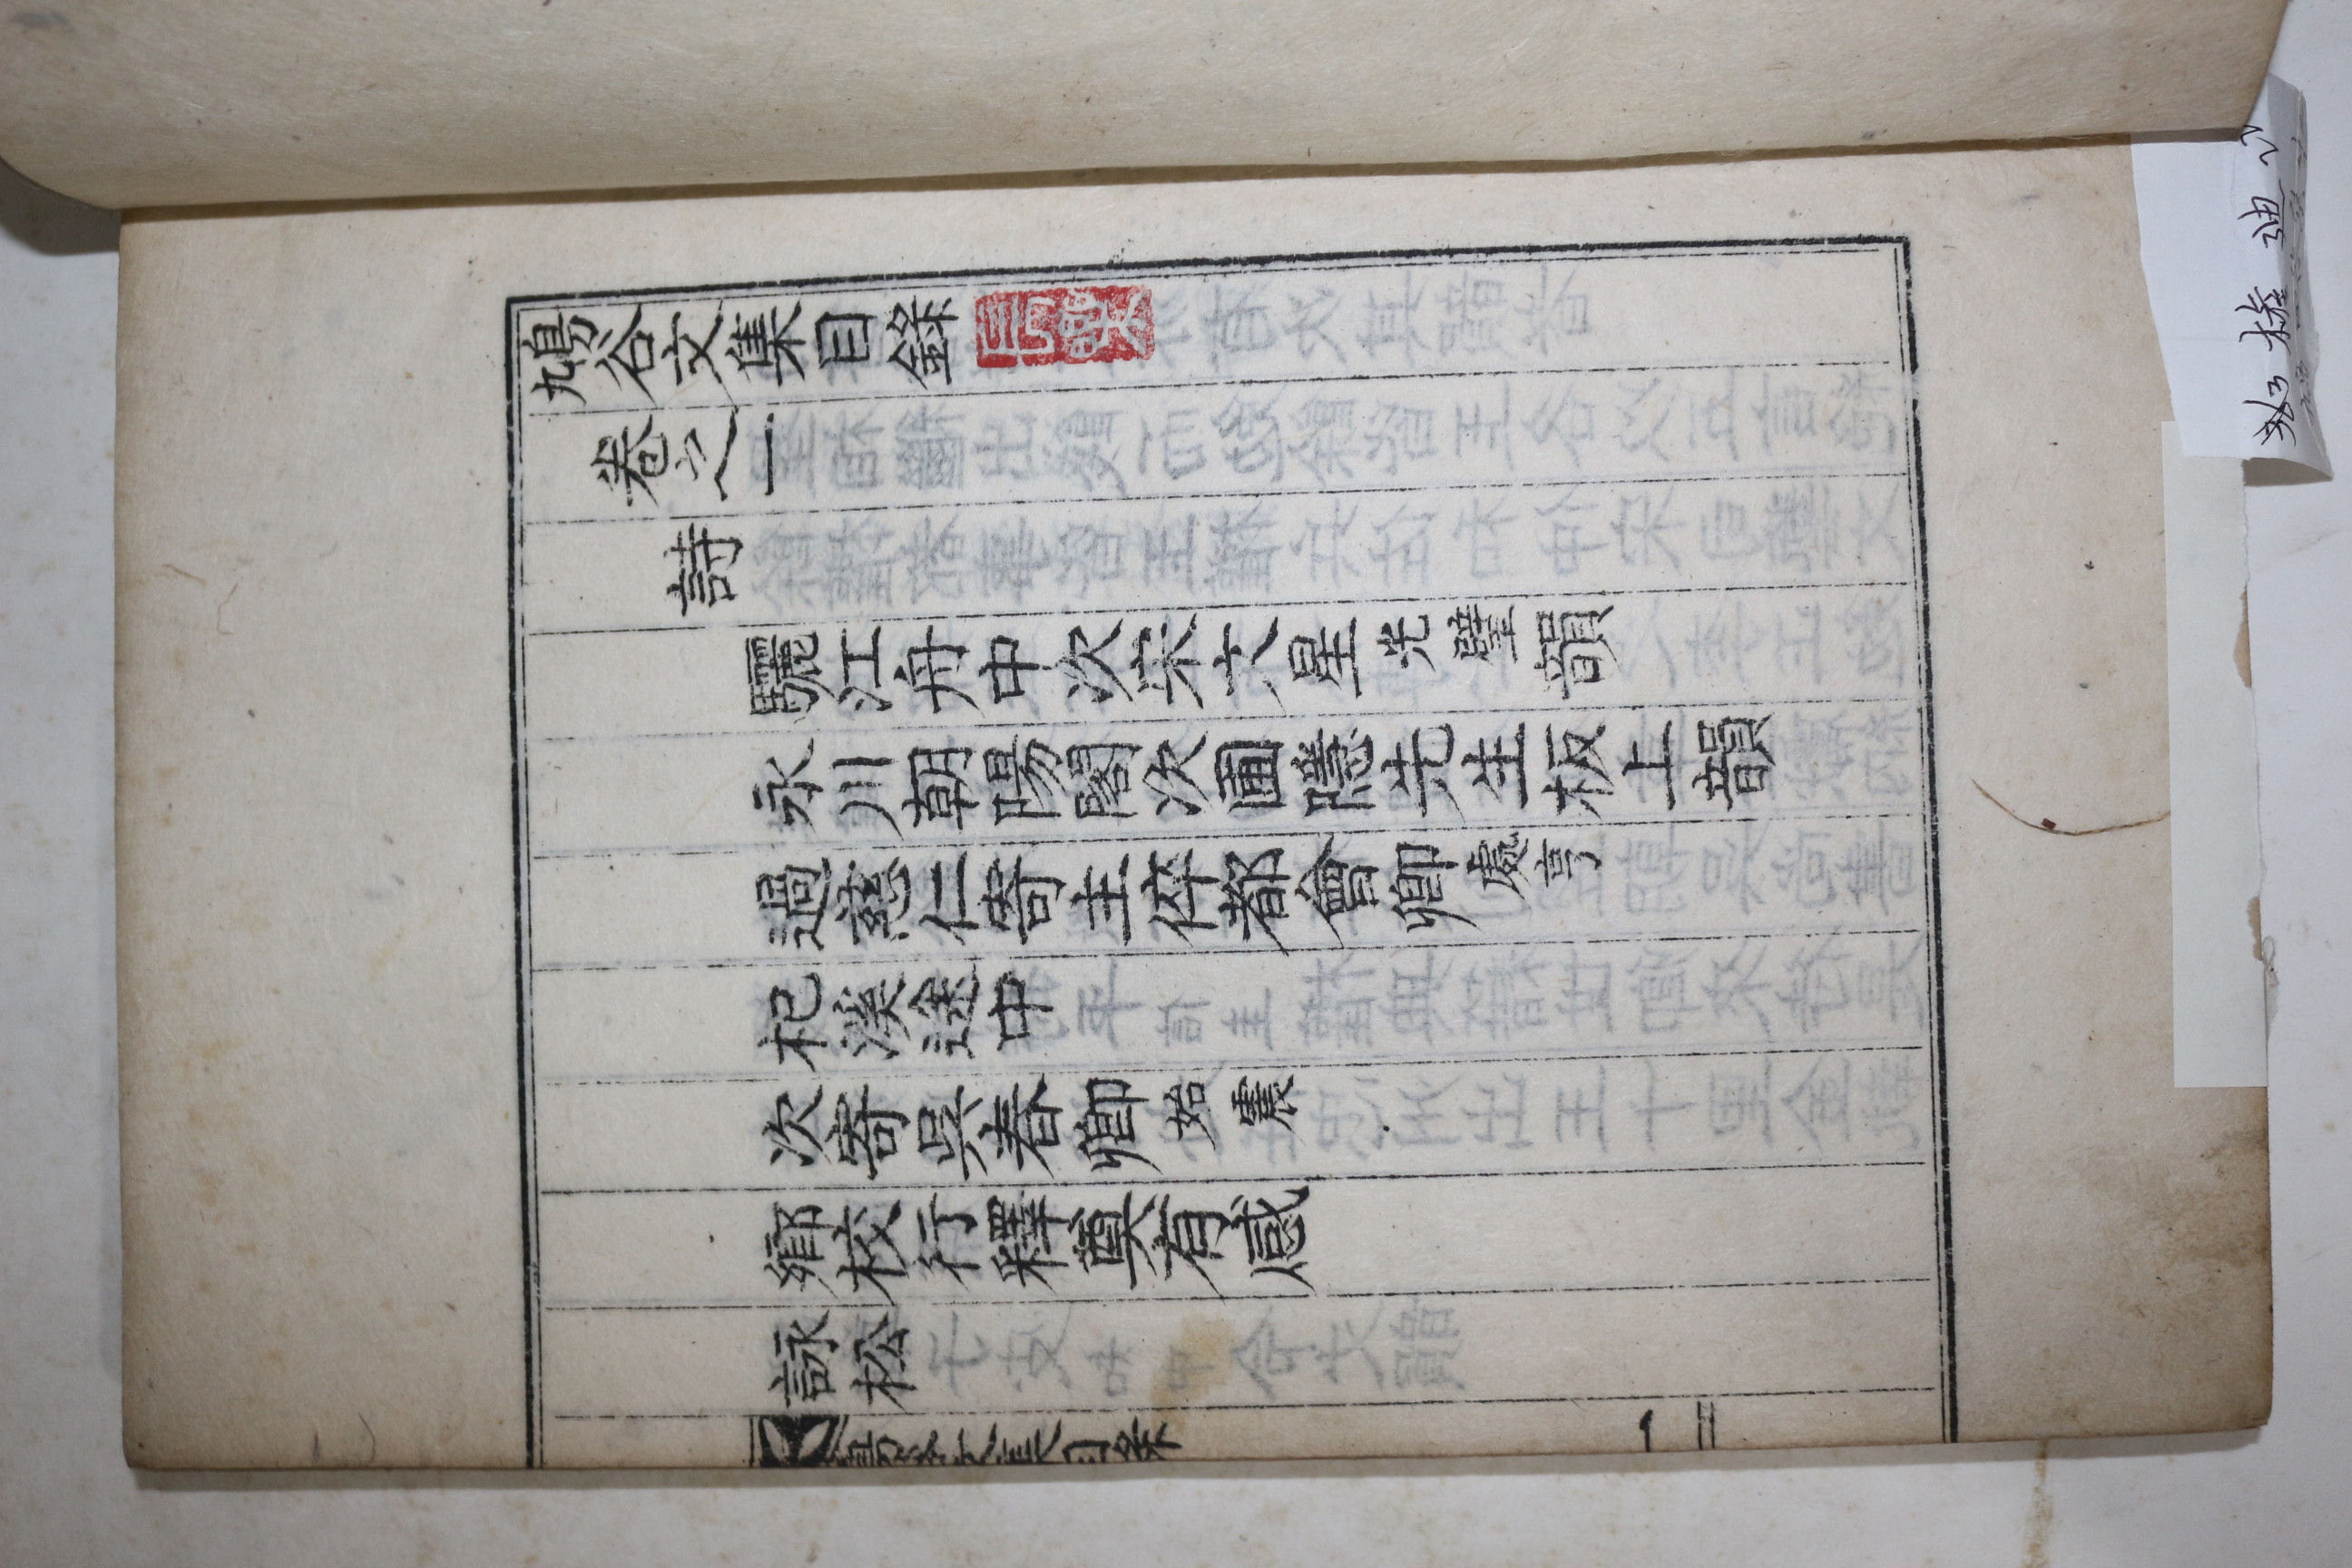 鳩谷文集目錄
卷之一
詩
驪江舟中次宋大星光璧韻
永川朝陽閣次圃隱先生板上韻
過慈仁寄主倅都會卿處亨
杞溪途中
次寄吳春卿始震
鄕校行釋奠有感
詠松